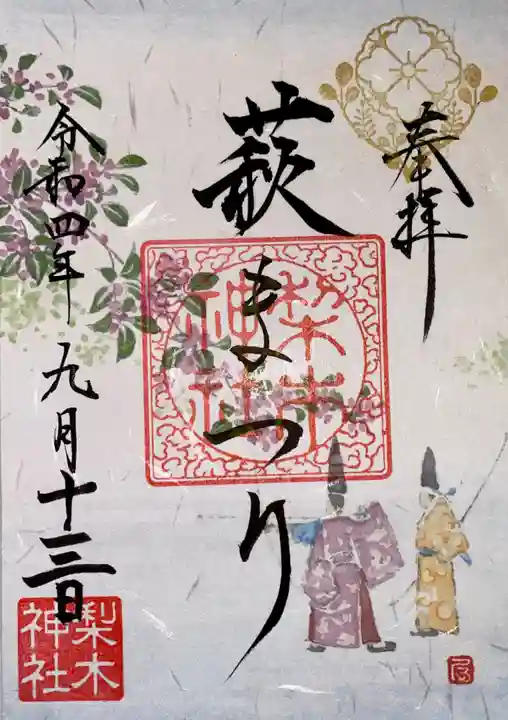 奉拝
萩まつり
梨木
神社
令和四年九月十三日
梨木
神社